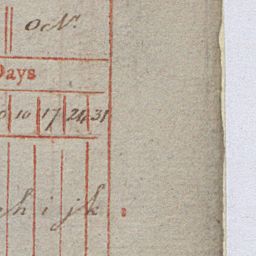 ON.
Days
10 17 24 31
h i j k